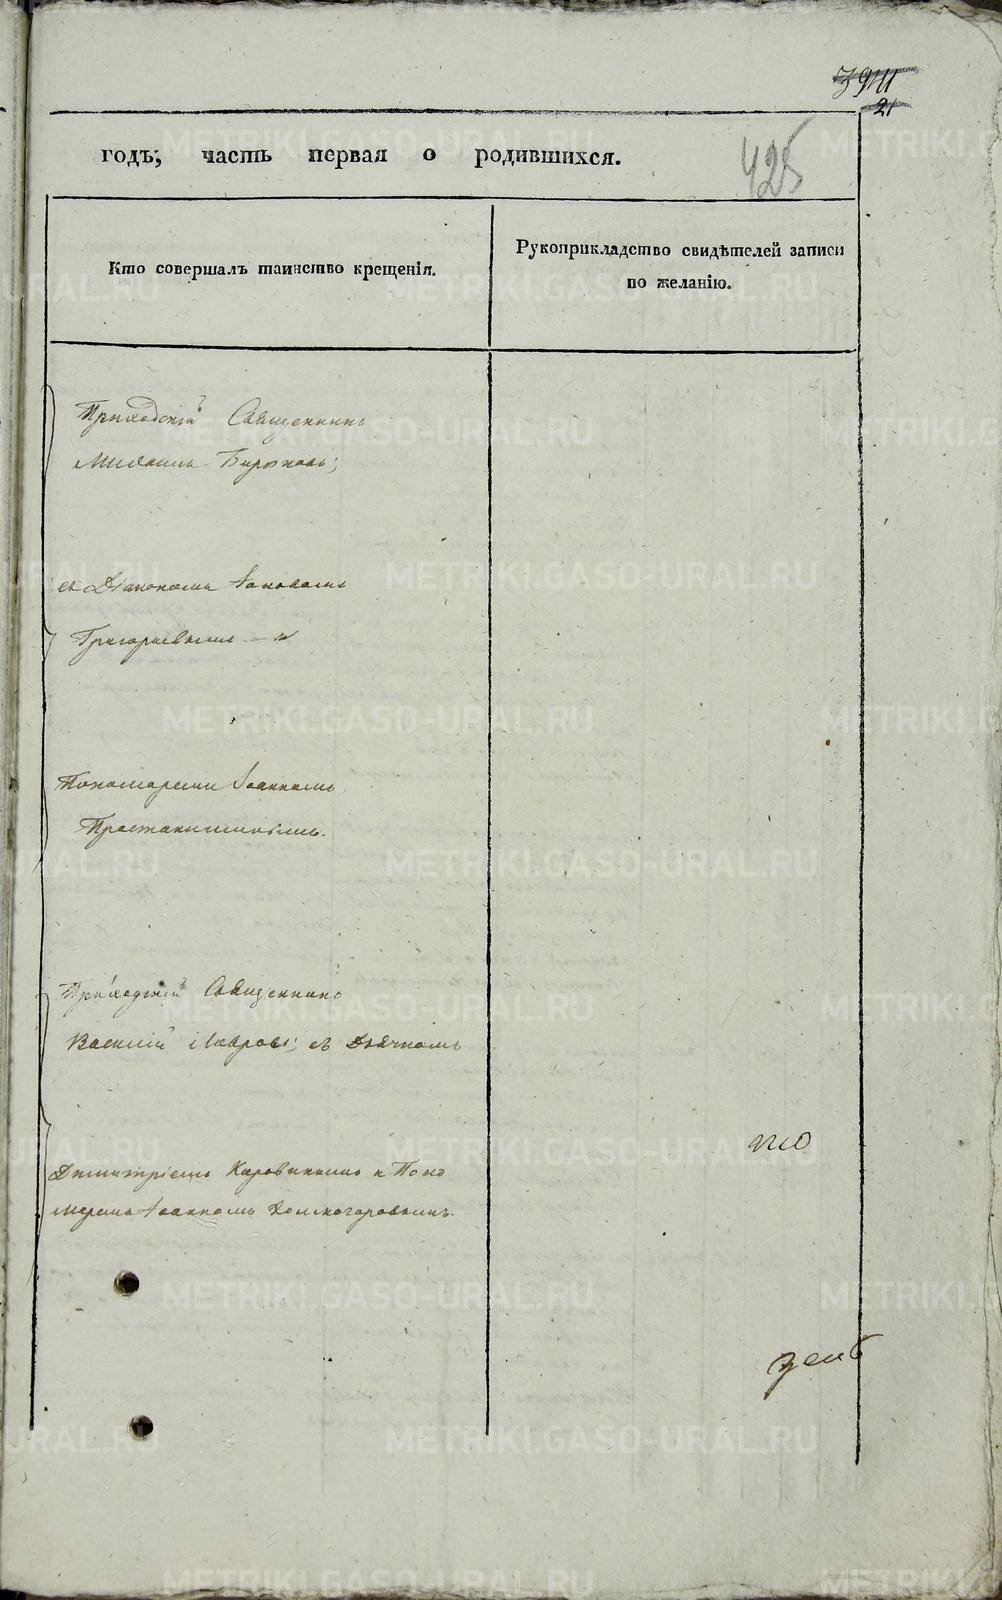 21
425
годъ; часть первая о родившихся.
Кто совершалъ таинство крещенія.
Рукоприкладство свидѣтелей записи
по желанію.
Приходскій Священникъ
Михаилъ Бирюковъ;
съ Діакономъ Іаковомъ
Григорьевымъ и
Пономаремъ Іоанномъ
Приходскій Священникъ
Василій Лавровъ; съ Дьячкомъ
Димитріемъ и Поно
маремъ Іоанномъ
METRIKI.GASO-URAL.RU